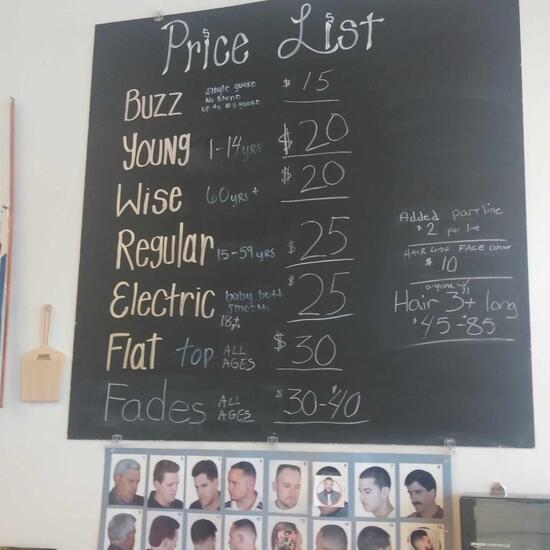 Price List
Buzz single guard $15
No Blend
up to #8 guard
Young 1-14 yrs $20
Wise 60 yrs + $20
Regular 15-59 yrs $25
Electric baby butt smooth 18+ $25
Flat top ALL AGES $30
Fades ALL AGES $30-$40
Added part line
$2 per line
HAIR LINE FACE
$10
anyone w/
Hair 3+ long
$45-$85